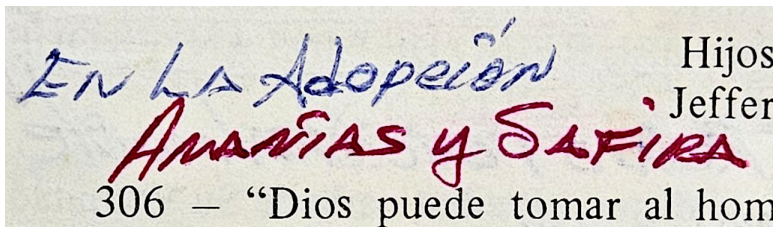 Hijos
En La Adopción
Jeffer
Ananías y Safira
306 – “Dios puede tomar al hom